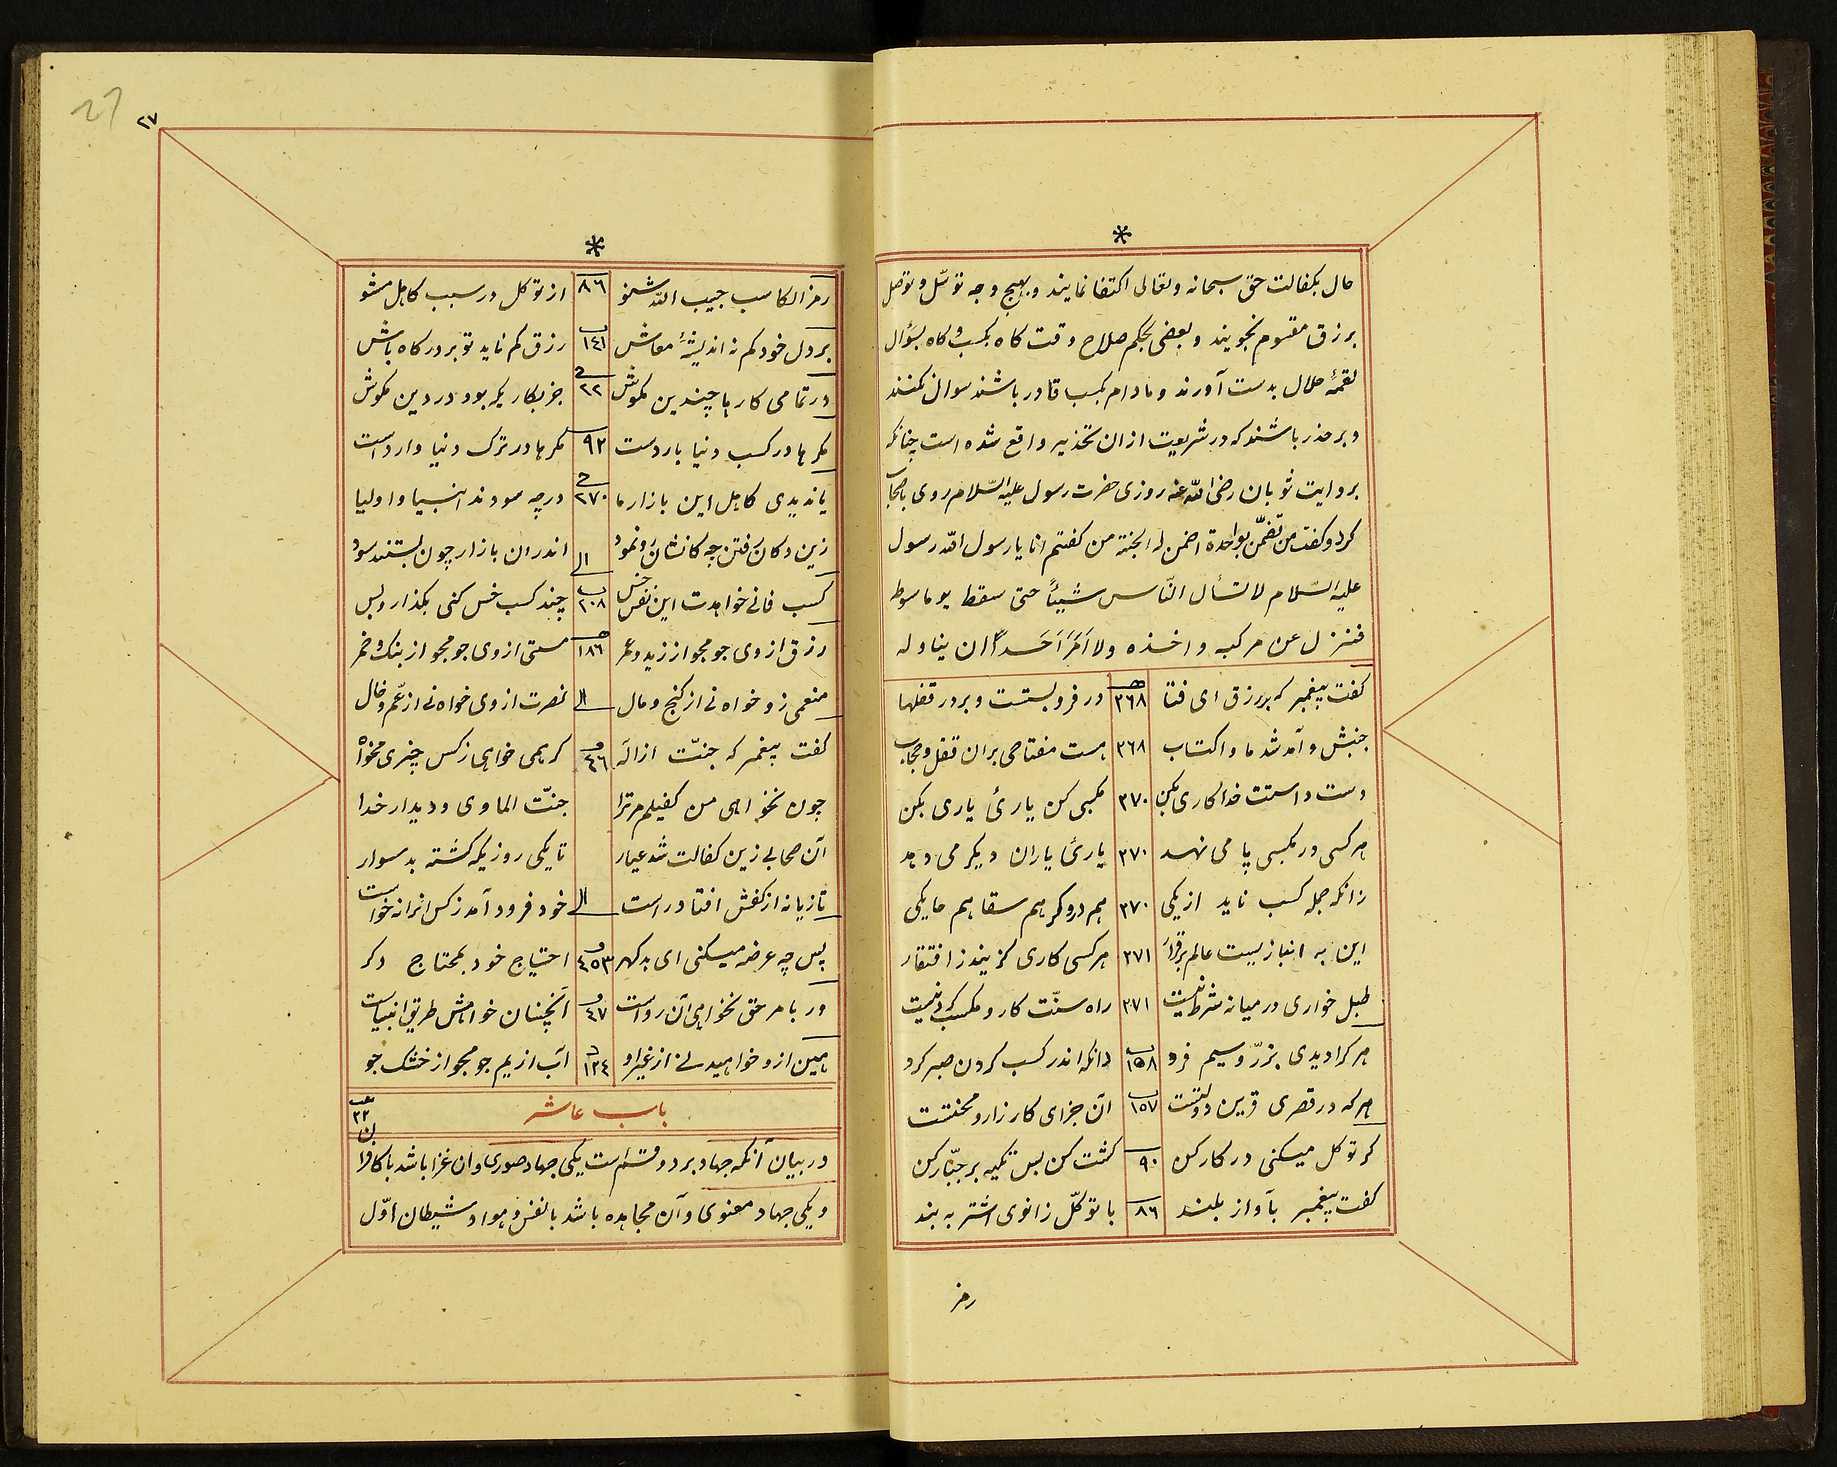 حال بکفالت حق سبحانه وتعالی اکتفا نمایند و بهیچ وجه توسّل و توصل
برزق مقسوم نجویند و بعضی بحکم صلاح وقت کاه بکسب و کاه بسؤال
لقمهٔ حلال بدست آورند و مادام بکسب قادر باشند سوال نکنند
و بر حذر باشند که در شریعت ازان تحذیر واقع شده است چنانکه
بروایت ثوبان رضی الله عنه روزی حضرت رسول علیه السّلام روی باصحاب
کرد و کفت من تضمّن بواحدة اضمن له الجنة من کفتم انا یا رسول الله رسول
علیه السّلام لا تسأل النّاس شیئاً حتی سقط یوما سوط
فنزل عن مرکبه و اخذه ولا اَمَرَ اَحَداً ان یناوله
کفت پیغمبر که بر رزق ای فتا ٣٦٨ در فرو بستست و بر در قفلها
جنبش و آمد شد ما و اکتساب ٣٦٨ هست مفتاحی بران قفل و حجاب
دست دادستت خدا کاری بکن ٢٧٠ مکسبی کن یارئ یاری بکن
هر کسی در مکسبی پا می نهد ٢٧٠ یارئ یاران دیکر می دهد
زانکه جمله کسب ناید از یکی ٢٧٠ هم دروکر هم سقا هم حایکی
این به انبازیست عالم برقرار ٢٧١ هر کسی کاری کزیند ز افتقار
طبل خواری درمیانه شرط نیست ٢٧١ راه سنّت کار و مکسب کردنیست
هر کرا دیدی بزرّ و سیم فرد ١٥٨ دانکه اندر کسب کردن صبر کرد
هر که در قصری قرین دولتست ١٥٧ آن جزای کارزار و محنتست
کر توکل میکنی در کار کن ٩٠ کشت کن بس تکیه بر جبّار کن
کفت پیغمبر بآواز بلند ٨٦ با توکّل زانوی اشتر به بند
رمز
٢٧
27
رمز الکاسب حبیب الله شنو ٨٦ از توکل در سبب کاهل مشو
بر دل خود کم نه اندیشهٔ معاش ١٤١ رزق کم ناید تو بر درکاه باش
در تمامی کارها چندین مکوش ٢٢ جز بکاریکه بود در دین مکوش
مکرها در کسب دنیا باردست ٩٢ مکرها در ترک دنیا واردست
یا ندیدی کاهل این بازار ما ٢٧٠ در چه سودند انبیا و اولیا
زین دکان رفتن چه کانشان رو نمود الی اندران بازار چون بستند سود
کسب فانی خواهدت این نفس خس ٢٠٨ چند کسب خس کنی بکذار و بس
رزق از وی جو مجو از زید و عمر ١٨٦ مستی از وی جو مجو از بنک و خمر
منعمی زو خواه نی از کنج و مال الی نصرت از وی خواه نی از عم و خال
کفت پیغمبر که جنّت از اله ٤٦ کر همی خواهی ز کس چیزی مخواه
چون نخواهی من کفیلم مر ترا جنّت الماوی و دیدار خدا
آن صحابی زین کفالت شد عیار تا یکی روزیکه کشته بد سوار
تازیانه از کفش افتاد راست الی خود فرود آمد ز کس انرا نخواست
پس چه عرضه میکنی ای بدکهر ٤٥٣ احتیاج خود بمحتاج دکر
ور بامر حق بخواهی آن رواست ٤٧ آنچنان خواهش طریق انبیاست
هین ازو خواهید نی از غیر او ١٢٤ آب از یم جو مجو از خشک جو
باب عاشر
٢٢
در بیان آنکه جهاد بر دو قسم است یکی جهاد صوری و ان غزا باشد با کافرا
و یکی جهاد معنوی و آن مجاهده باشد بانفس و هوا و شیطان اوّل